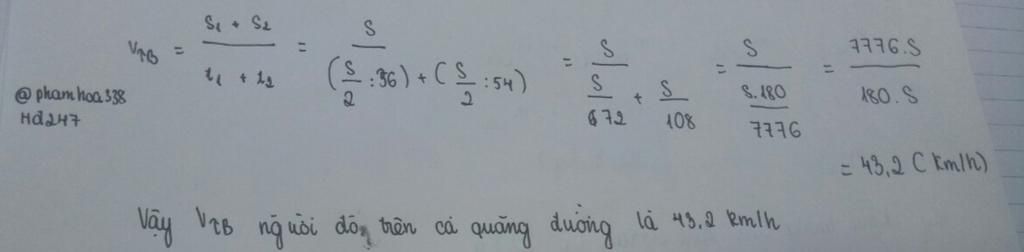 V_TB = (S₁ + S₂)/(t₁ + t₂) = S/((S/2 : 36) + (S/2 : 54)) = S/(S/72 + S/108) = S/(S.180/7776) = 7776.S/180.S
@phamhoa338
Hđ247
= 43,2 (km/h)
Vậy V_TB người đó trên cả quãng đường là 43,2 km/h